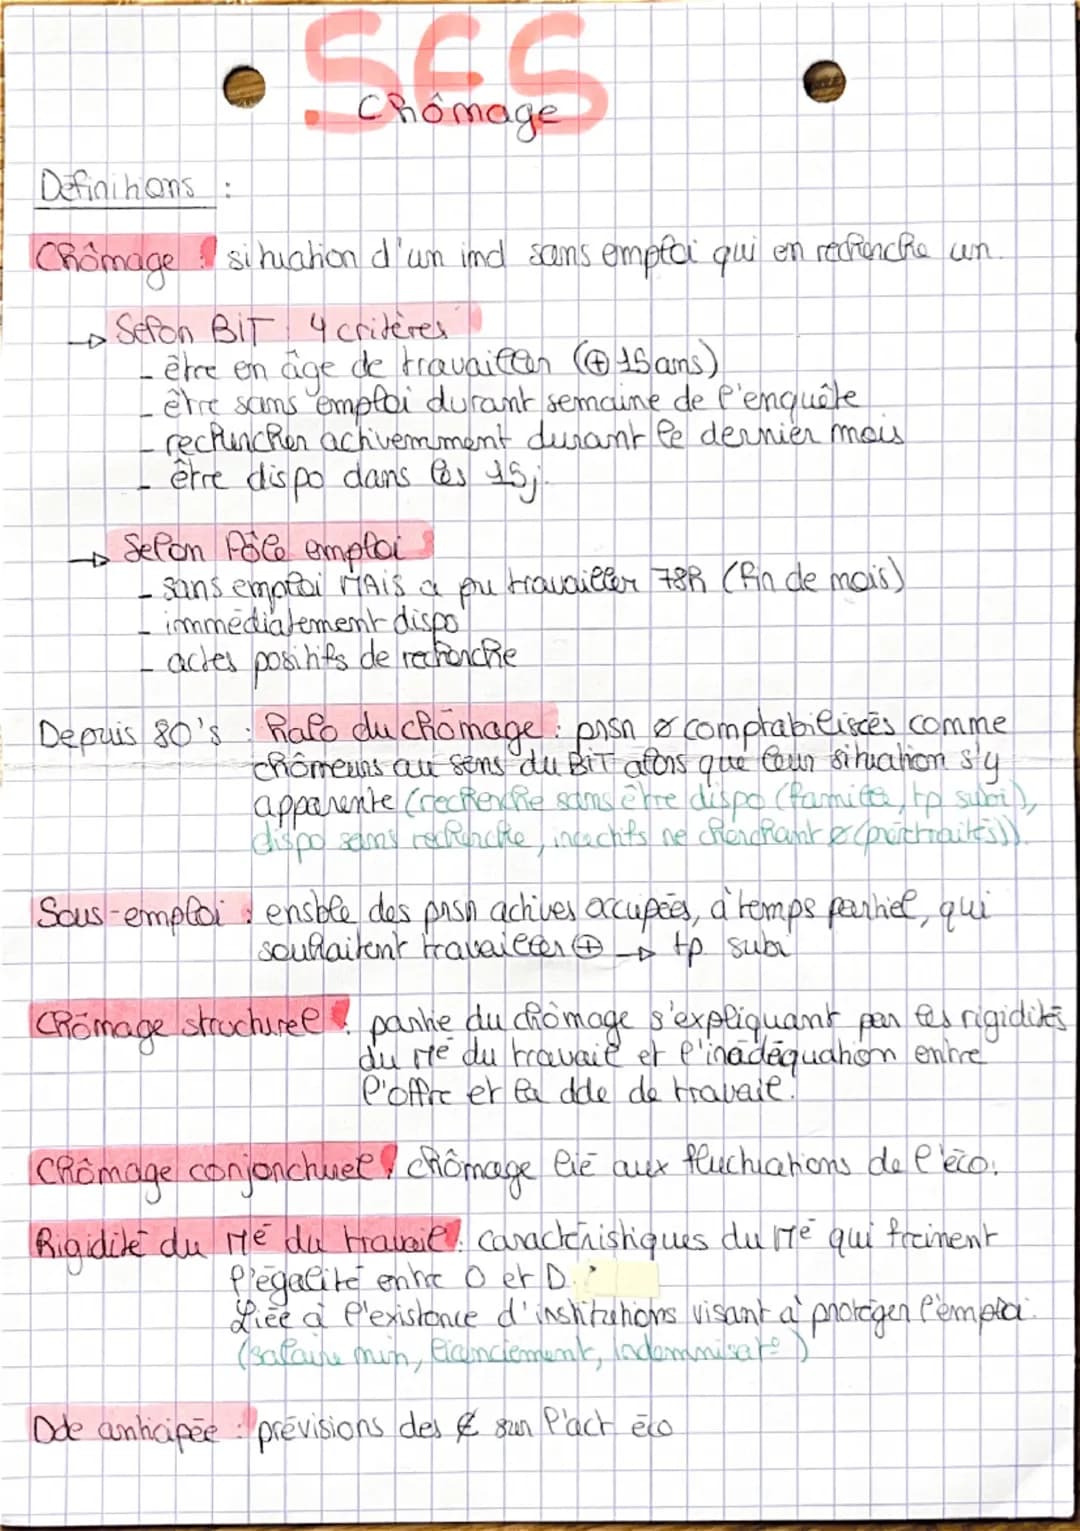 SES
Chômage
Définitions :
Chômage : situation d'un ind sans emploi qui en recherche un.
→ Selon BIT : 4 critères
- être en âge de travailler (⊕ 15 ans)
- être sans emploi durant semaine de l'enquête
- rechercher activemment durant le dernier mois
- être dispo dans les 15j.
→ Selon Pôle emploi
- sans emploi MAIS a pu travailler 78h (fin de mois)
- immédiatement dispo
- actes positifs de recherche
Depuis 80's : Halo du chômage : prsn ø comptabilisées comme
chômeurs au sens du BIT alors que leur situation s'y
apparente (recherche sans être dispo (famille, tp subi),
dispo sans recherche, inactifs ne cherchant ø (préretraités)).
Sous-emploi : ensble des prsn actives occupées, à temps partiel, qui
souhaitent travailler ⊕ → tp subi
Chômage structurel : partie du chômage s'expliquant par les rigidités
du Mé du travail et l'inadéquation entre
l'offre et la dde de travail.
Chômage conjoncturel : chômage lié aux fluctuations de l'éco.
Rigidité du Mé du travail : caractéristiques du Mé qui freinent
l'égalité entre O et D.
Liée à l'existence d'institutions visant à protéger l'emploi.
(salaire min, licenciement, indemnisat°)
Dde anticipée : prévisions des € sur l'act éco